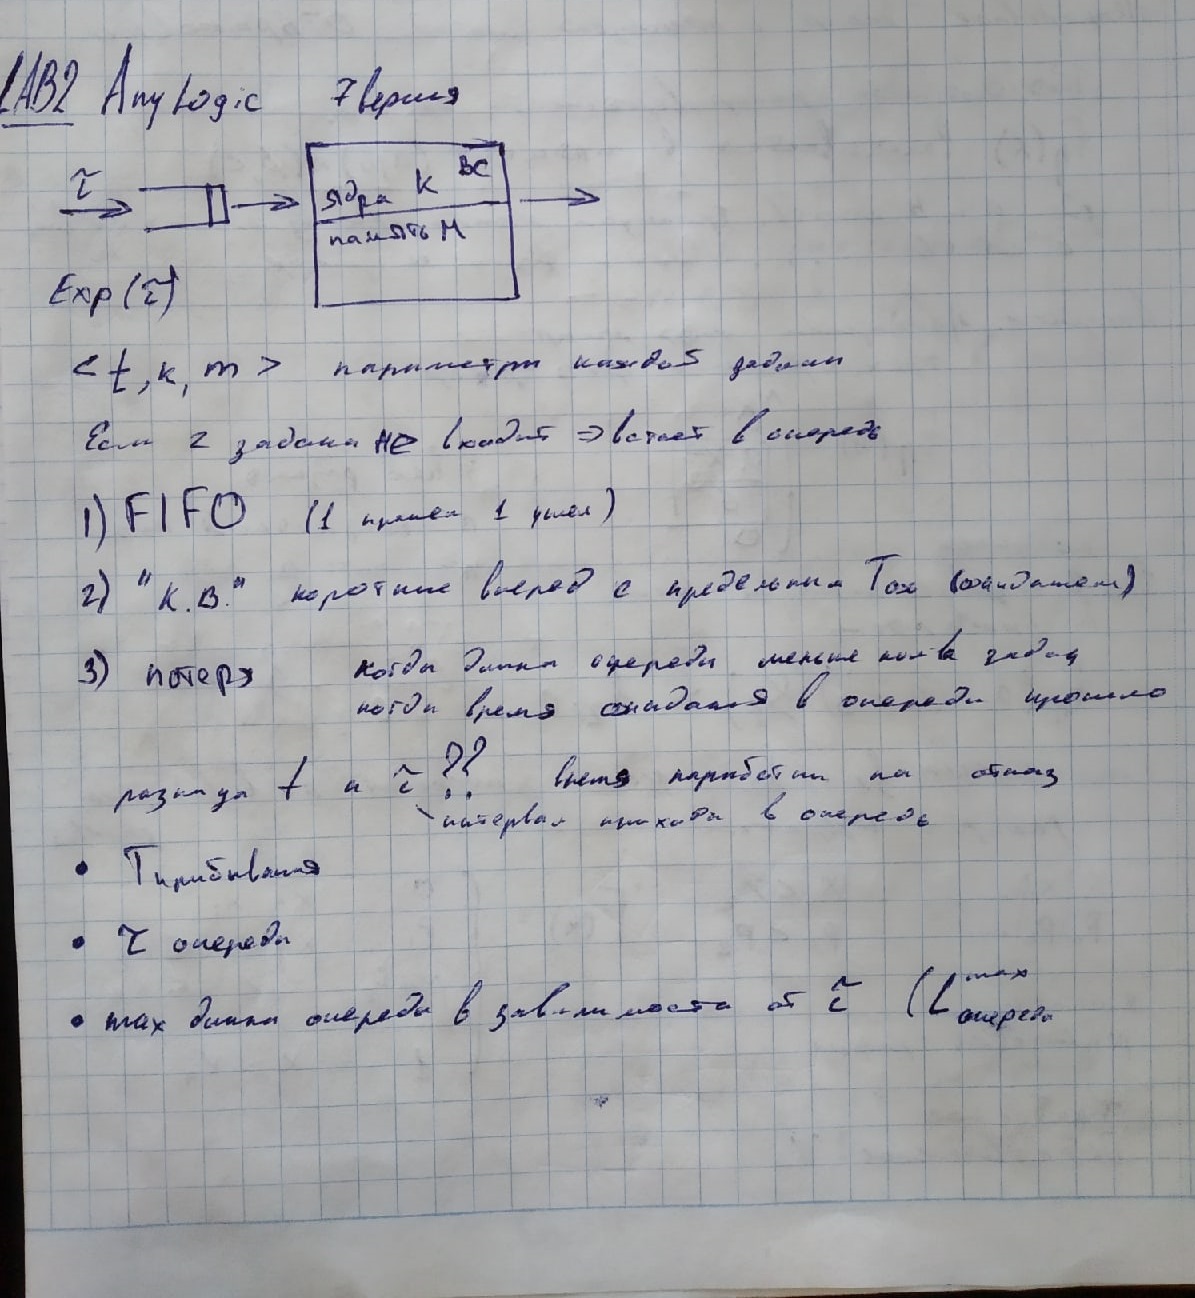 LAB2 AnyLogic 7 версия
τ̃
ядра K ВС
память М
Exp(τ̃)
<t, k, m> параметры каждой задачи
Если z задача не входит => встает в очередь
1) FIFO (1 пришел 1 ушел)
2) "К.В." короткие вперед с предельным Tож (ожидания)
3) потеря когда длина очереди меньше кол-ва задач
когда время ожидания в очереди прошло
разница t и τ̃ ?? время наработки на отказ
интервал прихода в очередь
• Tпребывания
• τ очереди
• max длина очереди в зависимости от τ̃ (L max очереди